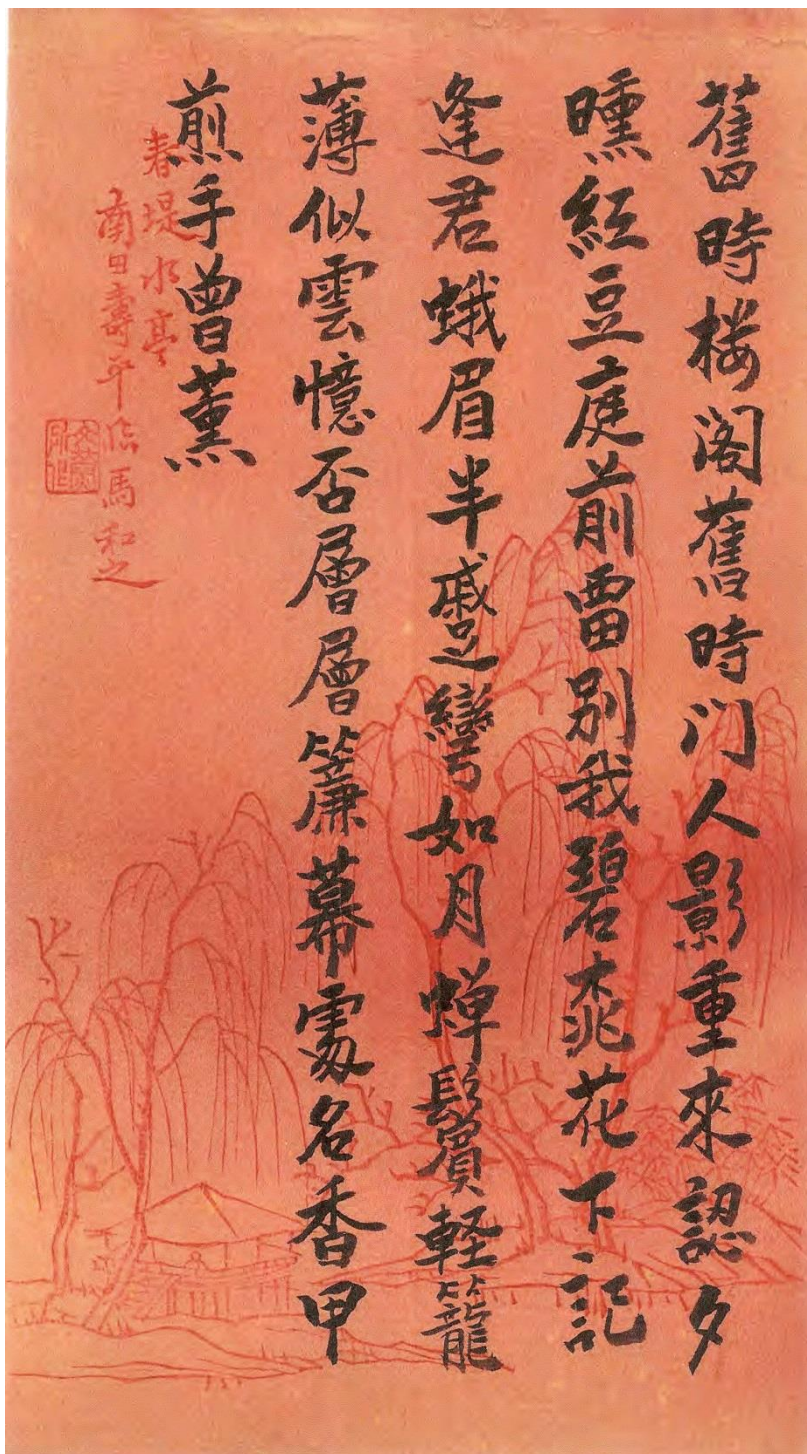 舊時楼阁舊時门人影重來認夕
曛紅豆庭前畱别我碧桃花下記
逢君蛾眉半蹙彎如月蝉鬢輕籠
薄似雲憶否層層簾幕處名香甲
煎手曾薰
春堤水亭
南田壽平临馬和之